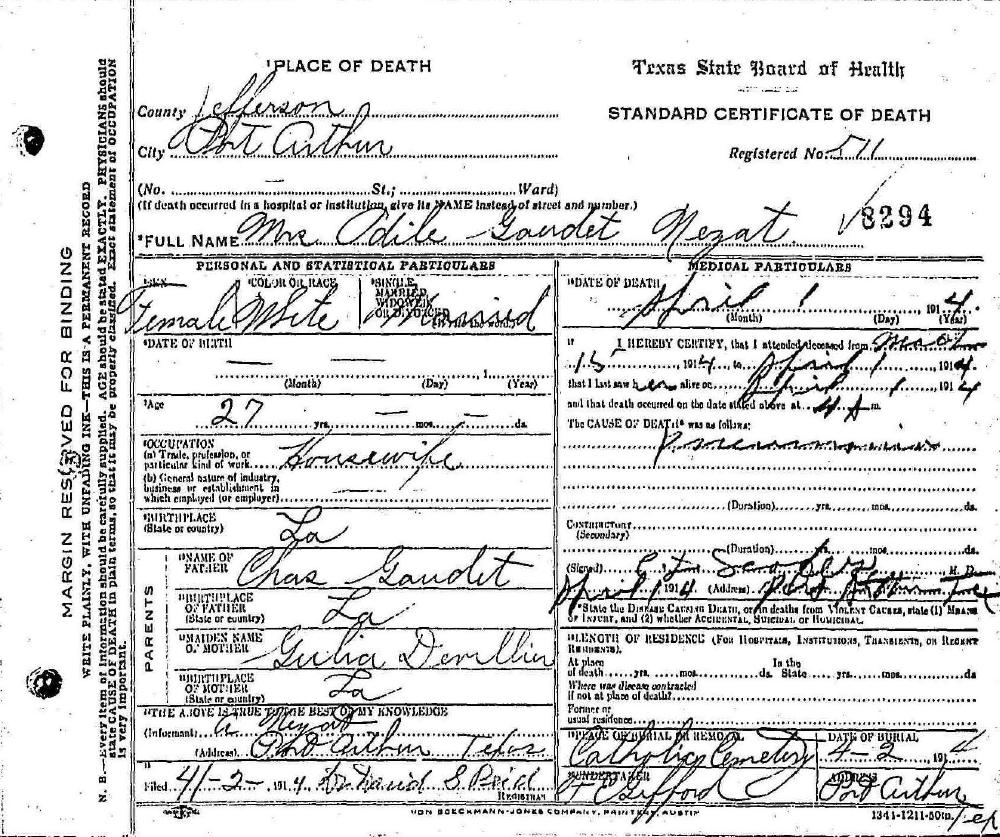 MARGIN RESERVED FOR BINDING
WRITE PLAINLY, WITH UNFADING INK—THIS IS A PERMANENT RECORD
N. B.—Every item of information should be carefully supplied. AGE should be stated EXACTLY. PHYSICIANS should
state CAUSE OF DEATH in plain terms, so that it may be properly classified. Exact statement of OCCUPATION
is very important.
¹PLACE OF DEATH
County Jefferson
City Port Arthur
(No. — St.; Ward)
(If death occurred in a hospital or institution, give its NAME instead of street and number.)
Texas State Board of Health
STANDARD CERTIFICATE OF DEATH
Registered No. 511
8294
²FULL NAME Mrs Odile Gaudet Nezat
PERSONAL AND STATISTICAL PARTICULARS
SEX Female
⁴COLOR OR RACE White
SINGLE, MARRIED WIDOWED OR DIVORCED Married
⁶DATE OF BIRTH
— — 1
(Month) (Day) (Year)
⁷Age
27 yrs. — mos. — ds.
⁸OCCUPATION
(a) Trade, profession, or
particular kind of work Housewife
(b) General nature of industry,
business or establishment in
which employed (or employer) —
⁹BIRTHPLACE
(State or country) La
PARENTS
¹⁰NAME OF
FATHER Chas Gaudet
¹¹BIRTHPLACE
OF FATHER
(State or country) La
¹²MAIDEN NAME
OF MOTHER Gulia Devillier
¹³BIRTHPLACE
OF MOTHER
(State or country) La
¹⁴THE ABOVE IS TRUE TO THE BEST OF MY KNOWLEDGE
(Informant) A Nezat
(Address) Port Arthur Texas
Filed 4-2- 1914 David S Reid
REGISTRAR
MEDICAL PARTICULARS
¹⁶DATE OF DEATH
April 1 1914
(Month) (Day) (Year)
¹⁷ I HEREBY CERTIFY, that I attended deceased from March
15 1914, to April 1 1914
that I last saw her alive on April 1 1914
and that death occurred on the date stated above at 4 A m.
The CAUSE OF DEATH* was as follows:
Pneumonia
(Duration) yrs. mos. ds.
CONTRIBUTORY
(Secondary)
(Duration) yrs. mos. ds.
(Signed) M. D.
April 1 1914 (Address) Port Arthur Tex
*State the DISEASE CAUSING DEATH, or in deaths from VIOLENT CAUSES, state (1) MEANS
OF INJURY, and (2) whether ACCIDENTAL, SUICIDAL or HOMICIDAL.
¹⁸LENGTH OF RESIDENCE (FOR HOSPITALS, INSTITUTIONS, TRANSIENTS, OR RECENT
RESIDENTS).
At place In the
of death yrs. mos. ds. State yrs. mos. ds
Where was disease contracted
if not at place of death?
Former or
usual residence
¹⁹PLACE OF BURIAL OR REMOVAL DATE OF BURIAL
Catholic Cemetery 4-2 1914
UNDERTAKER ADDRESS
F C Gifford Port Arthur
Tex
VON BOECKMANN-JONES COMPANY, PRINTERS, AUSTIN
1341-1211-50m.